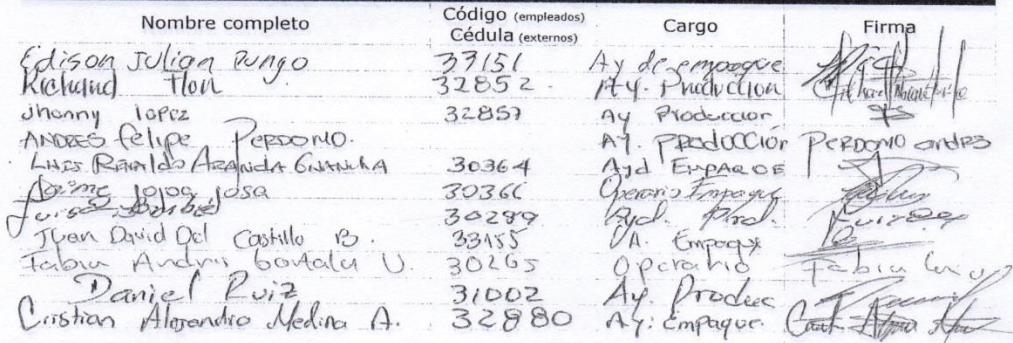 Nombre completo Código (empleados) Cédula (externos) Cargo Firma
Edison Julian Pungo 33151 Ay de empaque
Richard 32852. Ay. Producción
Jhonny lopez 32857 Ay Produccion
ANDRES felipe PERDOMO. AY. PRODUCCIÓN PERDOMO andres
LUIS RENALDO ARANDA GUANCHA 30364 Ayd EMPAQUE
Jaime Jojoa Josa 30366 Operario Empaque
Luisa 30289 Ayd. Prod.
Juan David Del Castillo B. 33155 A. Empaque
Fabian Andres U. 30265 Operario Fabian
Daniel Ruiz 31002 Ay. Produc
Cristian Alejandro Medina A. 32880 Ay: Empaque.